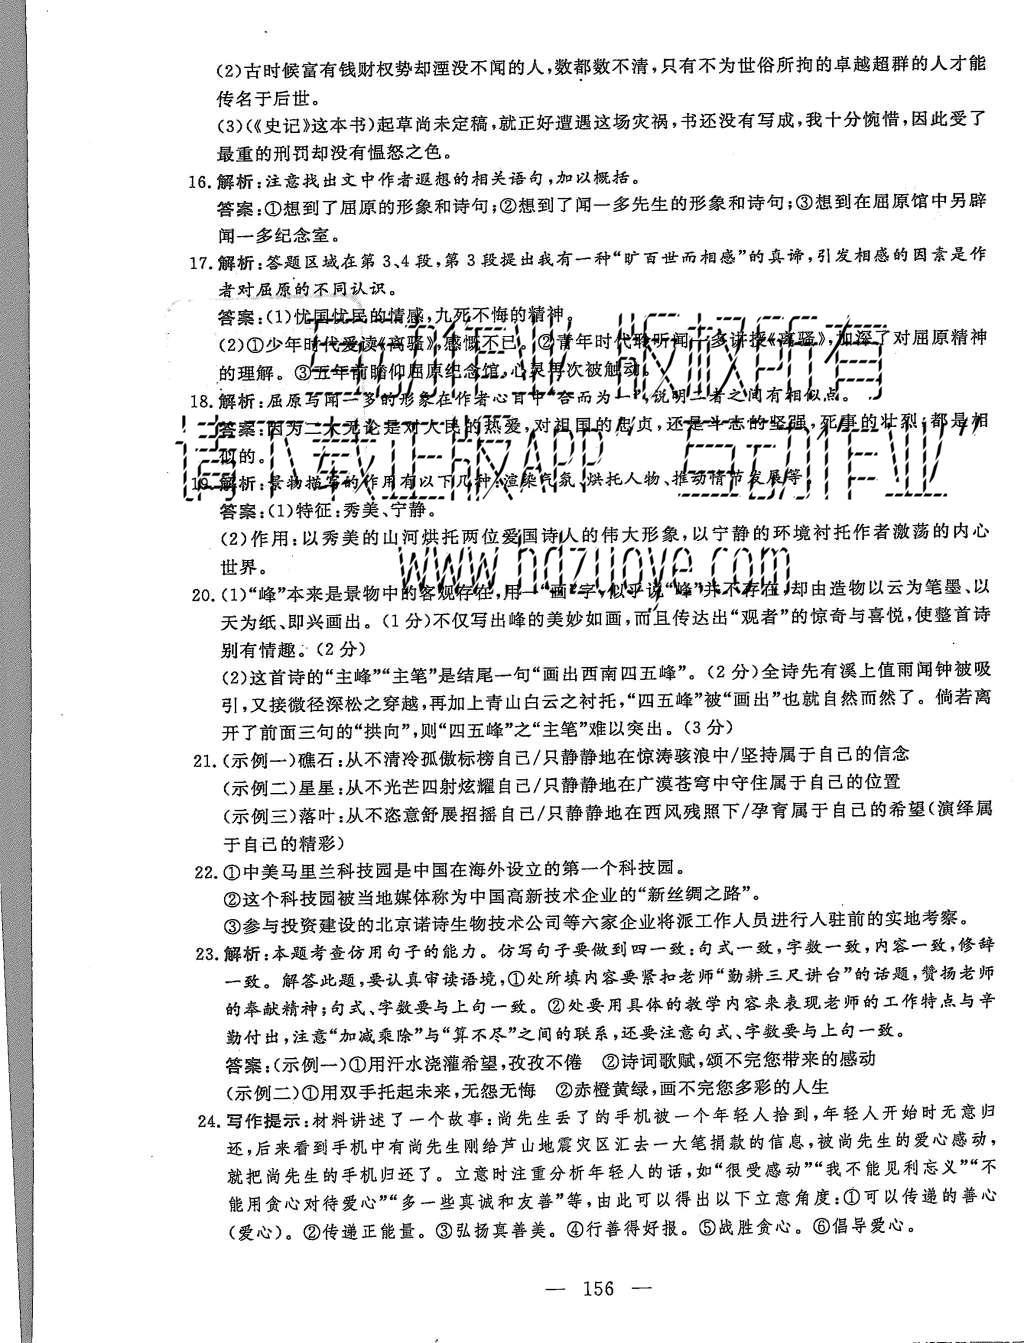 (2)古时候富有钱财权势却湮没不闻的人,数都数不清,只有不为世俗所拘的卓越超群的人才能
传名于后世。
(3)(《史记》这本书)起草尚未定稿,就正好遭遇这场灾祸,书还没有写成,我十分惋惜,因此受了
最重的刑罚却没有愠怒之色。
16. 解析:注意找出文中作者遐想的相关语句,加以概括。
答案:①想到了屈原的形象和诗句;②想到了闻一多先生的形象和诗句;③想到在屈原馆中另辟
闻一多纪念室。
17. 解析:答题区域在第3、4段,第3段提出我有一种“旷百世而相感”的真谛,引发相感的因素是作
者对屈原的不同认识。
答案:(1)忧国忧民的情感,九死不悔的精神。
(2)①少年时代爱读《离骚》,感慨不已。②青年时代聆听闻一多讲授《离骚》,加深了对屈原精神
的理解。③五年前瞻仰屈原纪念馆,心灵再次被触动。
18. 解析:屈原写闻一多的形象在作者心目中“合而为一”,说明二者之间有相似点。
答案:因为二人无论是对人民的热爱,对祖国的忠贞,还是斗志的坚强,死事的壮烈,都是相
似的。
19. 解析:景物描写的作用有以下几种:渲染气氛、烘托人物、推动情节发展等
答案:(1)特征:秀美、宁静。
(2)作用:以秀美的山河烘托两位爱国诗人的伟大形象,以宁静的环境衬托作者激荡的内心
世界。
20. (1)“峰”本来是景物中的客观存在,用一“画”字,似乎说“峰”并不存在,却由造物以云为笔墨、以
天为纸、即兴画出。(1分)不仅写出峰的美妙如画,而且传达出“观者”的惊奇与喜悦,使整首诗
别有情趣。(2分)
(2)这首诗的“主峰”“主笔”是结尾一句“画出西南四五峰”。(2分)全诗先有溪上值雨闻钟被吸
引,又接微径深松之穿越,再加上青山白云之衬托,“四五峰”被“画出”也就自然而然了。倘若离
开了前面三句的“拱向”,则“四五峰”之“主笔”难以突出。(3分)
21. (示例一)礁石:从不清冷孤傲标榜自己/只静静地在惊涛骇浪中/坚持属于自己的信念
(示例二)星星:从不光芒四射炫耀自己/只静静地在广漠苍穹中守住属于自己的位置
(示例三)落叶:从不恣意舒展招摇自己/只静静地在西风残照下/孕育属于自己的希望(演绎属
于自己的精彩)
22. ①中美马里兰科技园是中国在海外设立的第一个科技园。
②这个科技园被当地媒体称为中国高新技术企业的“新丝绸之路”。
③参与投资建设的北京诺诗生物技术公司等六家企业将派工作人员进行入驻前的实地考察。
23. 解析:本题考查仿用句子的能力。仿写句子要做到四一致:句式一致,字数一致,内容一致,修辞
一致。解答此题,要认真审读语境,①处所填内容要紧扣老师“勤耕三尺讲台”的话题,赞扬老师
的奉献精神;句式、字数要与上句一致。②处要用具体的教学内容来表现老师的工作特点与辛
勤付出,注意“加减乘除”与“算不尽”之间的联系,还要注意句式、字数要与上句一致。
答案:(示例一)①用汗水浇灌希望,孜孜不倦 ②诗词歌赋,颂不完您带来的感动
(示例二)①用双手托起未来,无怨无悔 ②赤橙黄绿,画不完您多彩的人生
24. 写作提示:材料讲述了一个故事:尚先生丢了的手机被一个年轻人拾到,年轻人开始时无意归
还,后来看到手机中有尚先生刚给芦山地震灾区汇去一大笔捐款的信息,被尚先生的爱心感动,
就把尚先生的手机归还了。立意时注重分析年轻人的话,如“很受感动”“我不能见利忘义”“不
能用贪心对待爱心”“多一些真诚和友善”等,由此可以得出以下立意角度:①可以传递的善心
(爱心)。②传递正能量。③弘扬真善美。④行善得好报。⑤战胜贪心。⑥倡导爱心。
— 156 —
互动作业 版权所有
请下载正版APP“互动作业”
www.hdzuoye.com